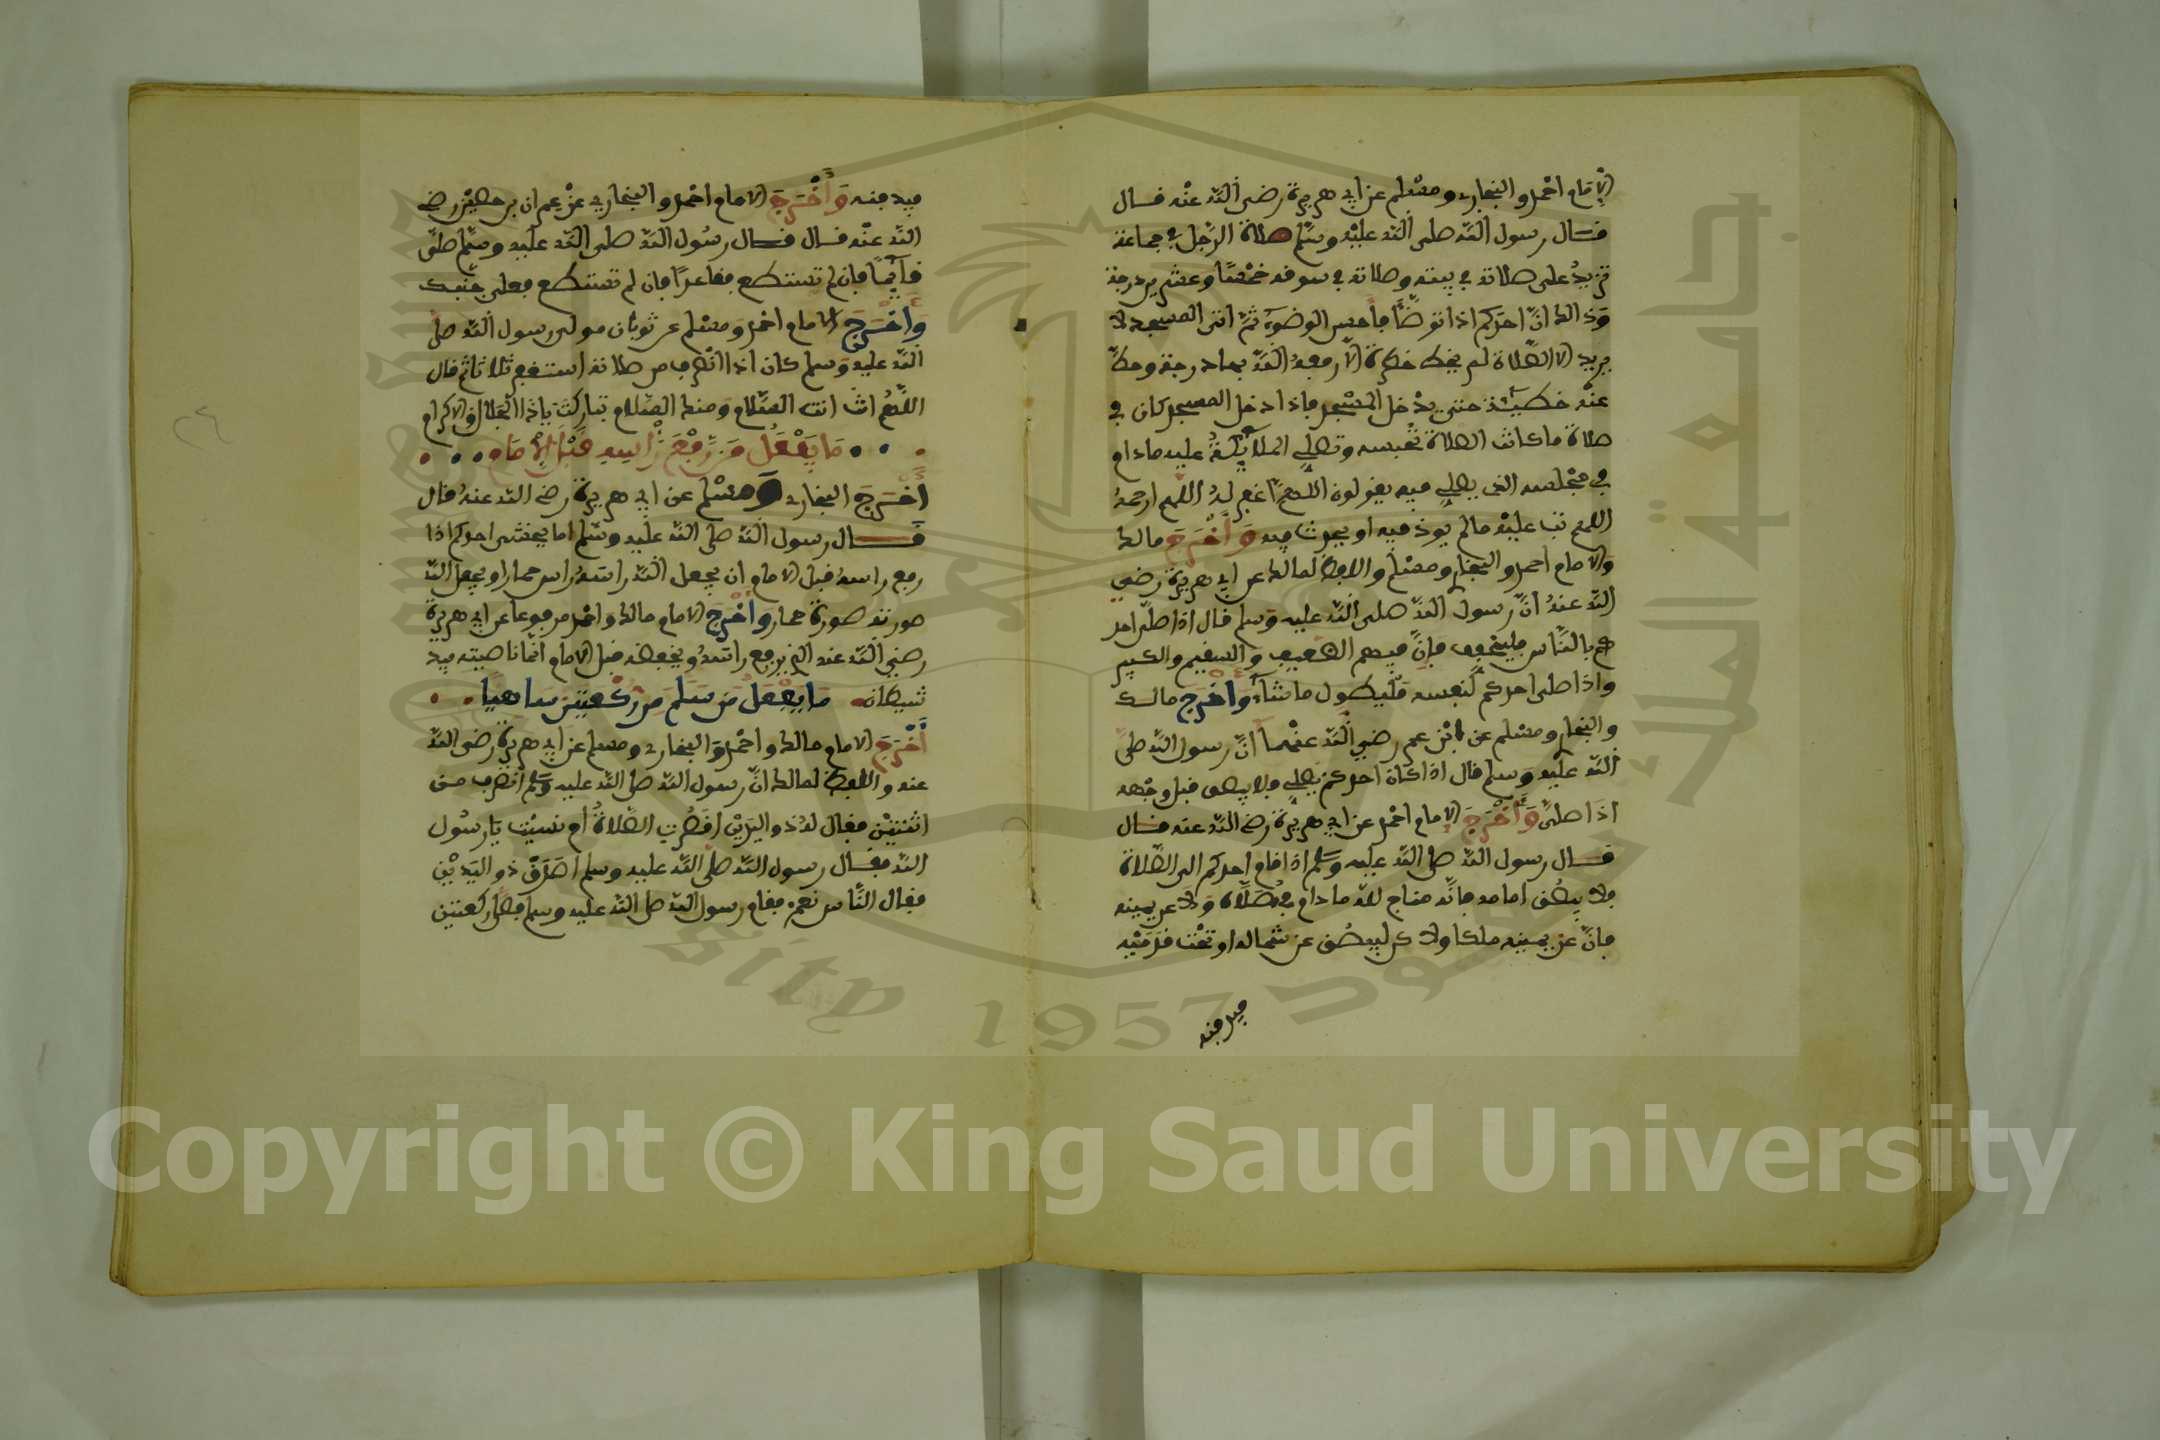 الامام احمد والبخاري ومسلم عن ابي هريرة رضي الله عنه قال
قال رسول الله صلى الله عليه وسلم صلاة الرجل في جماعة
تزيد على صلاته في بيته وصلاته في سوقه خمسا وعشرين درجة
وذالك ان احدكم اذا توضأ فأحسن الوضوء ثم اتى المسجد لا
يريد الا الصلاة لم يخط خطوة الا رفعه الله بها درجة وحط
عنه خطيئة حتى يدخل المسجد فاذا دخل المسجد كان في
صلاة ما كانت الصلاة تحبسه وتصلي الملائكة عليه مادام
في مجلسه الذي يصلي فيه يقولون اللهم اغفر له اللهم ارحمه
اللهم تب عليه مالم يوذ فيه او يحدث فيه وأخرج مالك
والامام احمد والبخاري ومسلم واللفظ لمالك عن ابي هريرة رضي
الله عنه ان رسول الله صلى الله عليه وسلم قال اذا صلى احد
كم بالناس فليخفف فان فيهم الضعيف والسقيم والكبير
واذا صلى احدكم لنفسه فليطول ما شاء وأخرج مالك
والبخاري ومسلم عن ابن عمر رضي الله عنهما ان رسول الله صلى
الله عليه وسلم قال اذا كان احدكم يصلي فلا يبصق قبل وجهه
اذا صلى وأخرج الامام احمد عن ابي هريرة رضي الله عنه قال
قال رسول الله صلى الله عليه وسلم اذا قام احدكم الى الصلاة
فلا يبصق امامه فانه مناج لله مادام في صلاة ولا عن يمينه
فان عن يمينه ملكا ولاكن ليبصق عن شماله او تحت قدميه
فيدفنه
فيدفنه وأخرج الامام احمد والبخاري عن عمران بن حصين رضي
الله عنه قال قال رسول الله صلى الله عليه وسلم صل
قائما فان لم تستطع فقاعدا فان لم تستطع فعلى جنبك
وأخرج الامام احمد ومسلم عن ثوبان مولى رسول الله صلى
الله عليه وسلم كان اذا انصرف من صلاته استغفر ثلاثا ثم قال
اللهم انت السلام ومنك السلام تباركت ياذا الجلال والاكرام
ما يفعل من رفع رأسه قبل الامام
أخرج البخاري ومسلم عن ابي هريرة رضي الله عنه قال
قال رسول الله صلى الله عليه وسلم اما يخشى احدكم اذا
رفع راسه قبل الامام ان يجعل الله راسه راس حمار او يجعل الله
صورته صورة حمار وأخرج الامام مالك واحمد مرفوعا عن ابي هريرة
رضي الله عنه الذي يرفع راسه ويخفضه قبل الامام انما ناصيته بيد
شيطان ما يفعل من سلم من ركعتين ساهيا
أخرج الامام مالك واحمد والبخاري ومسلم عن ابي هريرة رضي الله
عنه واللفظ لمالك ان رسول الله صلى الله عليه وسلم انصرف من
اثنتين فقال له ذو اليدين اقصرت الصلاة أم نسيت يا رسول
الله فقال رسول الله صلى الله عليه وسلم اصدق ذو اليدين
فقال الناس نعم فقام رسول الله صلى الله عليه وسلم فصلى ركعتين
Copyright © King Saud University
1957